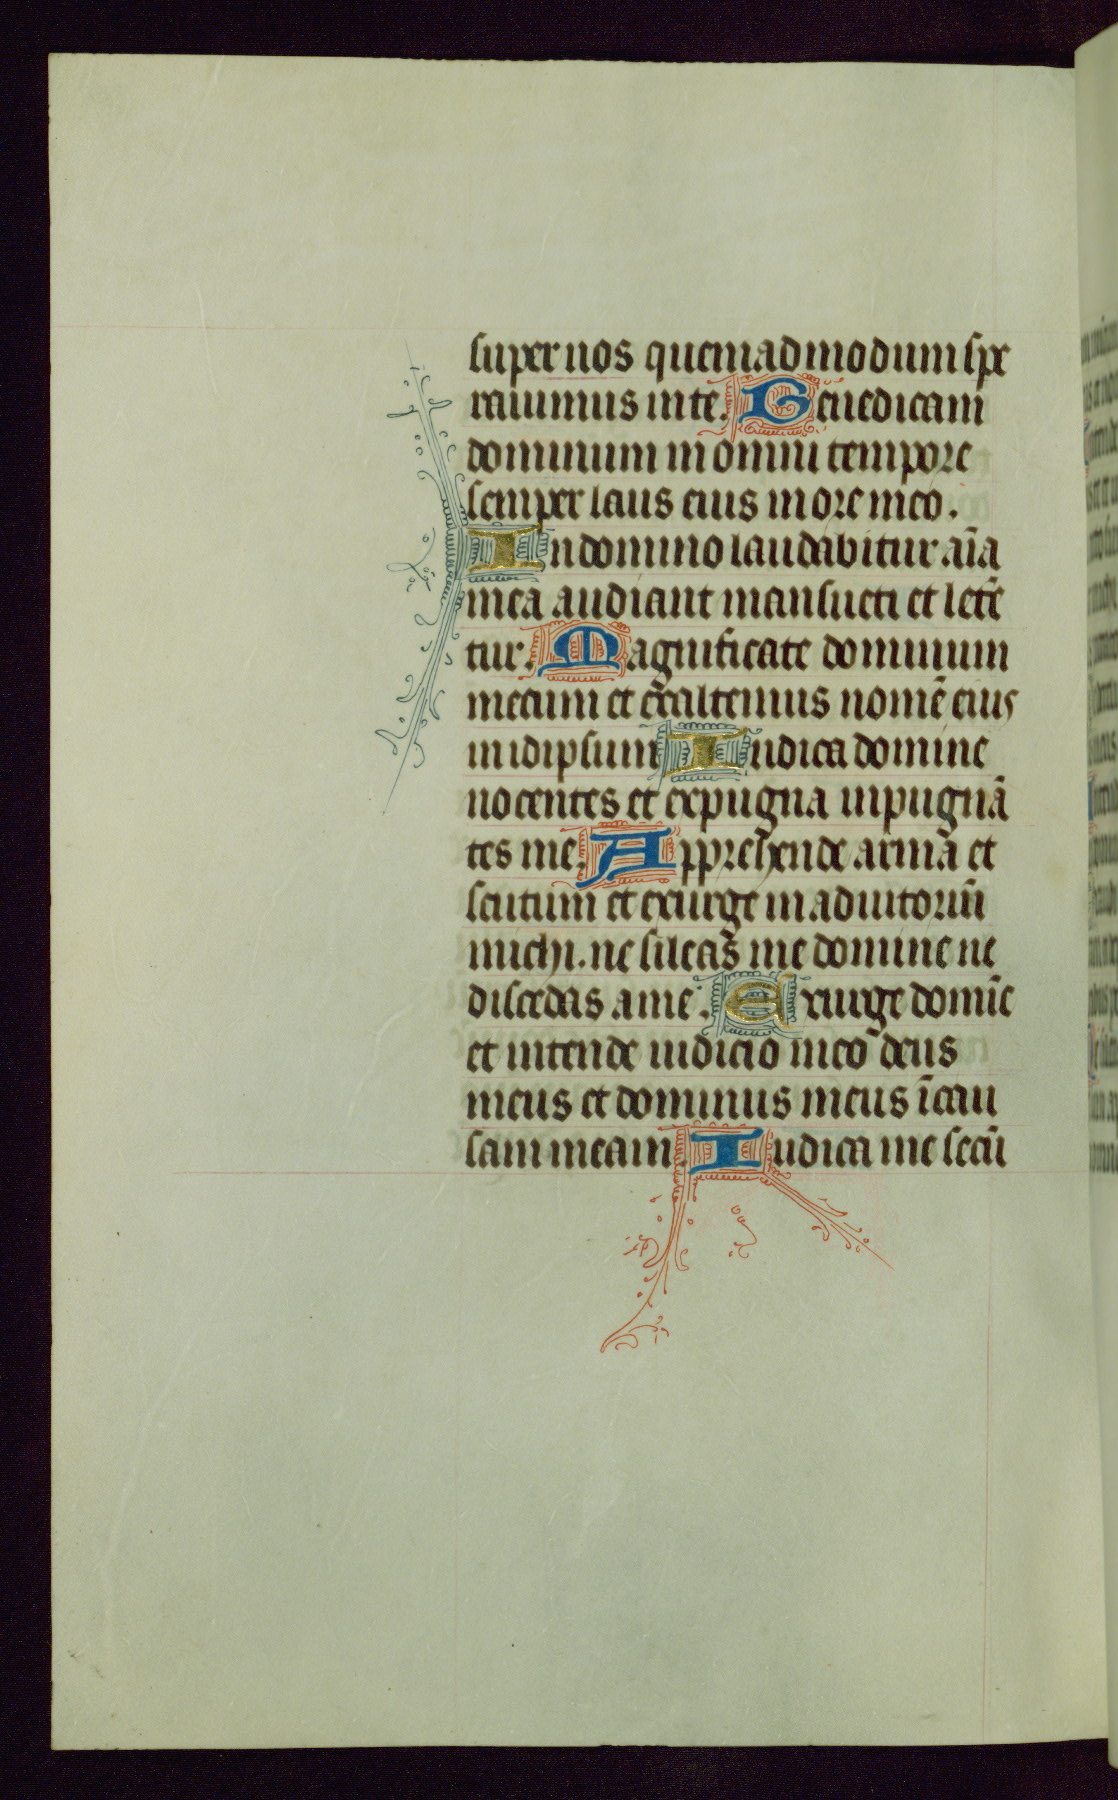 super nos quemadmodum spe
rauimus in te. Benedicam
dominum in omni tempore
semper laus eius in ore meo.
In domino laudabitur aīa
mea audiant mansueti et letē
tur. Magnificate dominum
mecum et exaltemus nomē eius
in idipsum Iudica domine
nocentes et expugna inpugnā
tes me. Apprehende arma et
scutum et exurge in adiutoriū
michi. ne sileas me domine ne
discedas a me. Exurge domīe
et intende iudicio meo deus
meus et dominus meus ī cau
sam meam. Iudica me secū